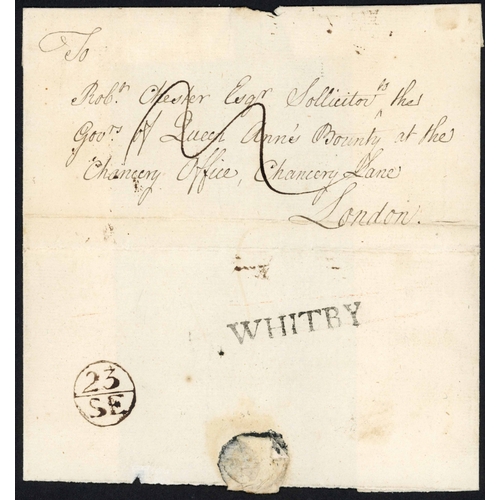 To
Robt. Chester Esqr. Sollicitor to the
Govrs. of Queen Ann's Bounty at the
Chancery Office, Chancery Lane
London.
WHITBY
23
SE